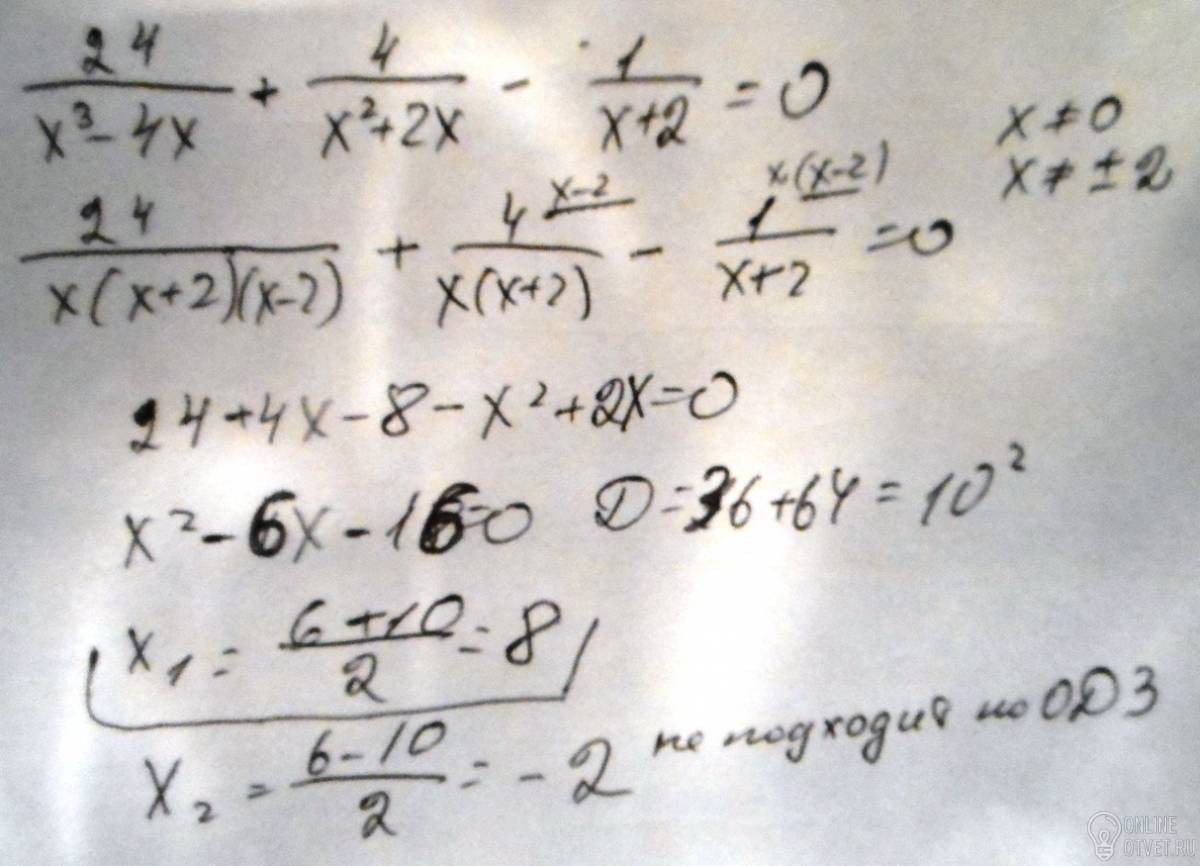 24/(x³-4x) + 4/(x²+2x) - 1/(x+2) = 0
x ≠ 0
x ≠ ± 2
24/(x(x+2)(x-2)) + 4 x-2/(x(x+2)) - 1 x(x-2)/(x+2) = 0
24+4x-8-x²+2x=0
x²-6x-16=0 D=36+64=10²
x₁ = (6+10)/2 = 8
x₂ = (6-10)/2 = -2 не подходит по ОДЗ
ONLINE
OTVET.RU